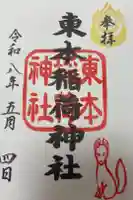 奉拝
東本稲荷神社
東本
神社
令和八年五月
四日